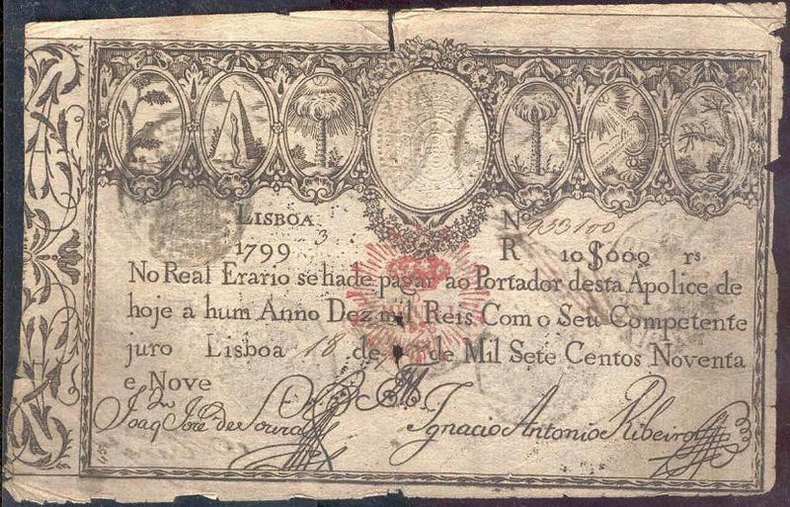 LISBOA
1799 3
Nº 
R 10$000 rs
No Real Erario se hade pagar ao Portador desta Apolice de
hoje a hum Anno Dez mil Reis Com o Seu Competente
juro Lisboa 18 de de Mil Sete Centos Noventa
e Nove
Joaq Jose de Souza
Ignacio Antonio Ribeiro